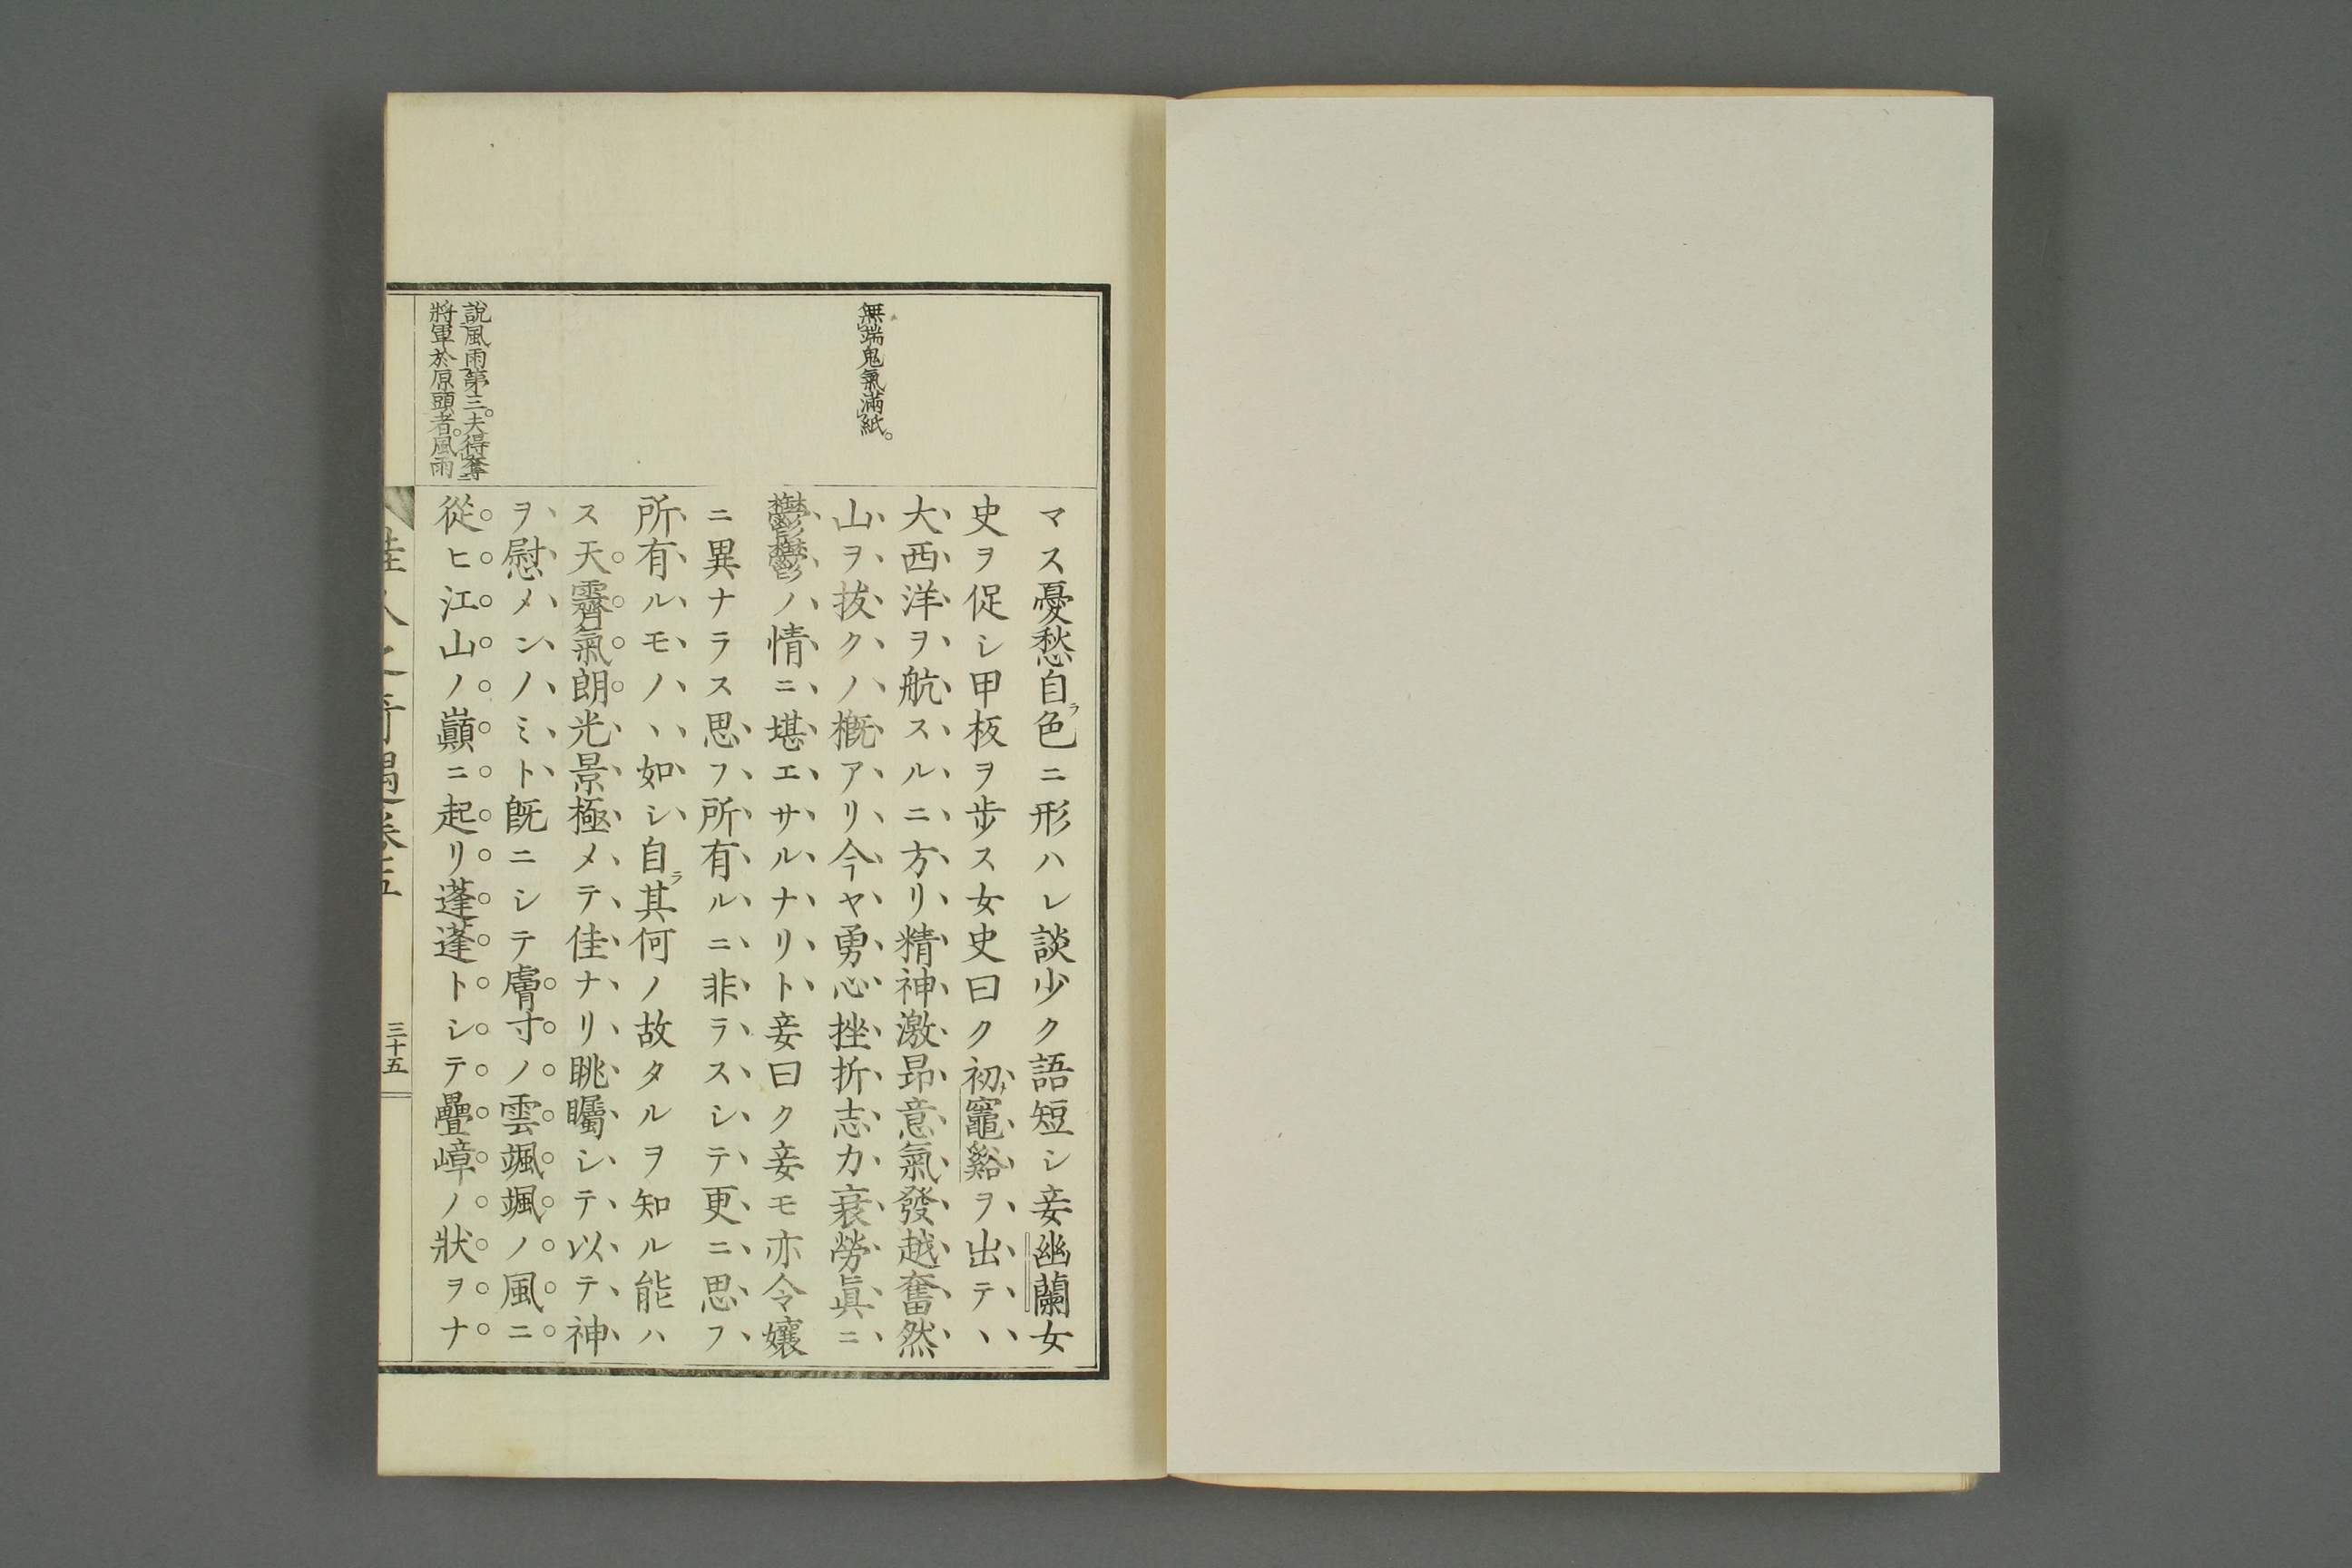 無端鬼氣滿紙。
說風雨第三。夫得奪
將軍於原頭者。風雨
マス憂愁自ラ色ニ形ハレ談少ク語短シ妾幽蘭女
史ヲ促シ甲板ヲ歩ス女史曰ク初メ竈谿ヲ出テヽ
大西洋ヲ航スルニ方リ精神激昂意氣發越奮然
山ヲ拔クノ概アリ今ヤ勇心挫折志力衰勞眞ニ
鬱鬱ノ情ニ堪エサルナリト妾曰ク妾モ亦令孃
ニ異ナラス思フ所有ルニ非ラスシテ更ニ思フ
所有ルモノヽ如シ自ラ其何ノ故タルヲ知ル能ハ
ス天霽氣朗光景極メテ佳ナリ眺矚シテ以テ神
ヲ慰メンノミト既ニシテ膚寸ノ雲颯颯ノ風ニ
從ヒ江山ノ巓ニ起リ蓬蓬トシテ疊嶂ノ狀ヲナ
佳人之奇遇卷五
三十五